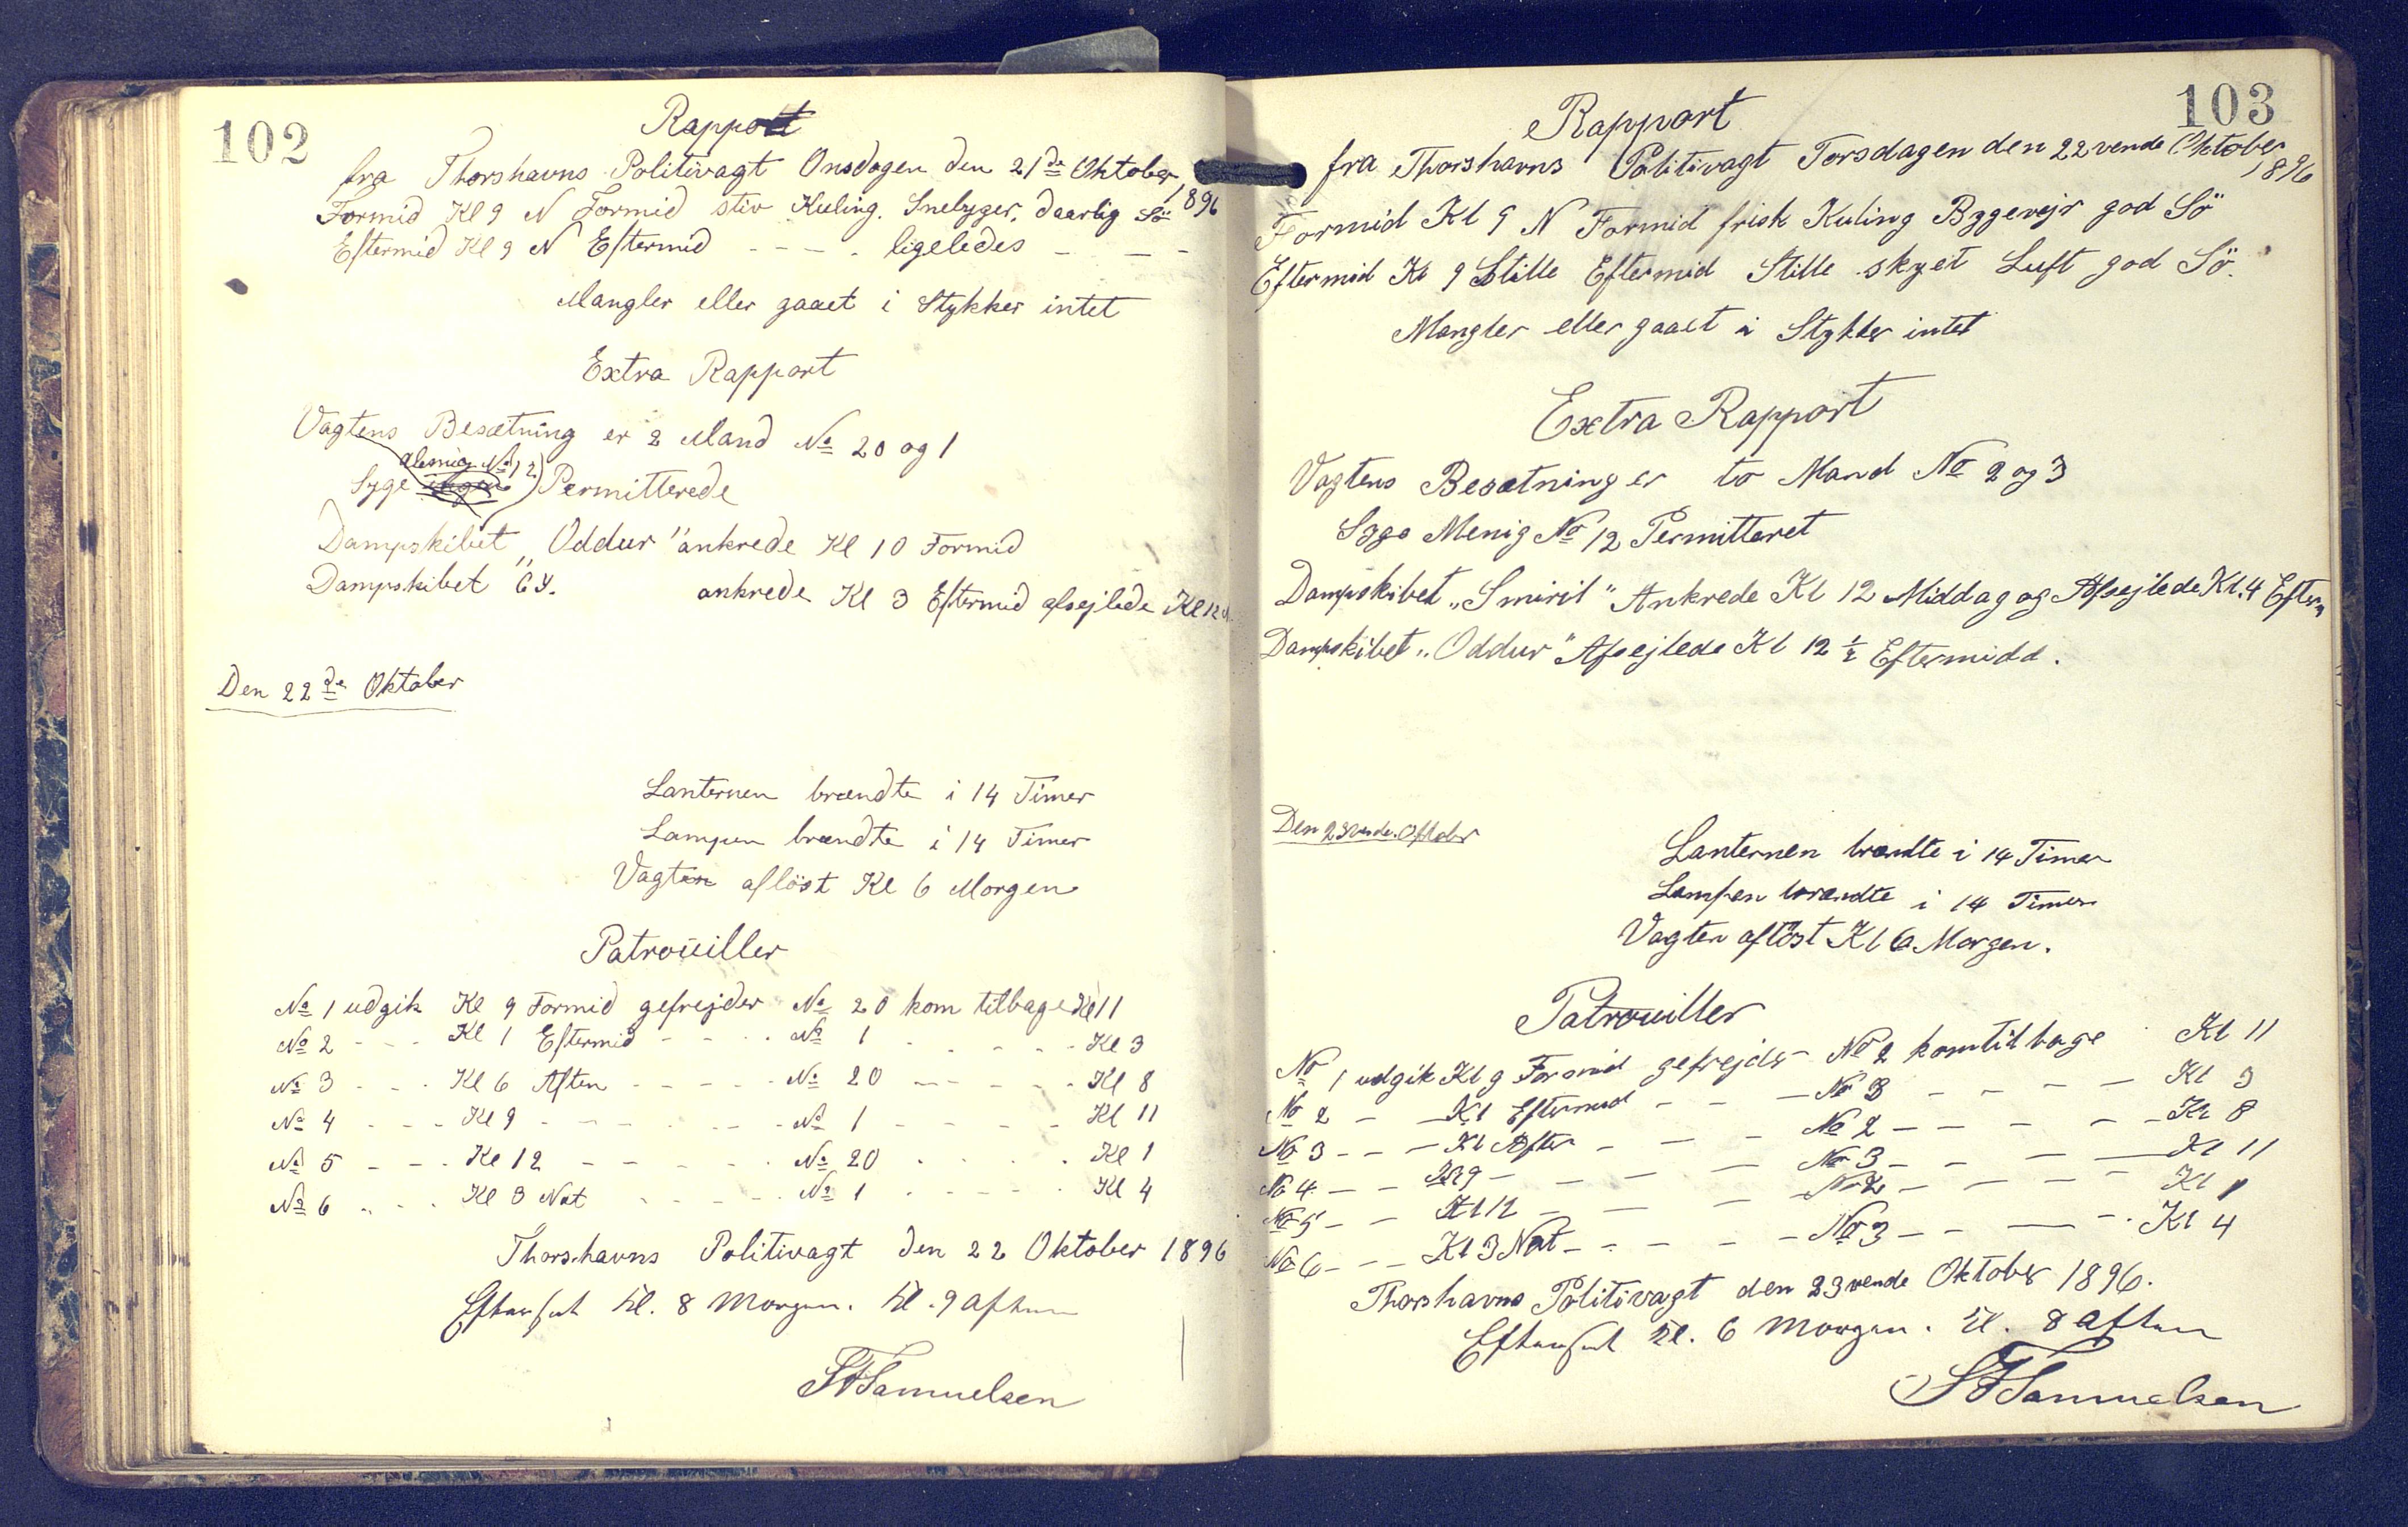 102
Rapport
fra Thorshavns Politivagt Onsdagen den 21de Oktober 1896
Formid Kl 9 N Formid stiv Kuling. Snebyger, daarlig Sö
Eftermid Kl 9 N Eftermid - - - ligeledes - - -
Mangler eller gaaet i Stykker intet
Extra Rapport
Vagtens Besætning er 2 Mand No 20 og 1
Menig No 12
Syge Permitterede
Dampskibet „Oddur" ankrede Kl 10 Formid
Dampskibet ankrede Kl 3 Eftermid afsejlede Kl 12
Den 22de Oktober
Lanternen brændte i 14 Timer
Lampen brændte i 14 Timer
Vagten aflöst Kl 6 Morgen
Patrouiller
No 1 udgik Kl 9 Formid gefrejder No 20 kom tilbage Kl 11
No 2 - - - Kl 1 Eftermid - - - - No 1 - - - - - Kl 3
No 3 - - - Kl 6 Aften - - - - - No 20 - - - - - Kl 8
No 4 - - - Kl 9 - - - - - - - No 1 - - - - - Kl 11
No 5 - - - Kl 12 - - - - - No 20 - - - - Kl 1
No 6 - - - Kl 3 Nat - - - - - No 1 - - - - - Kl 4
Thorshavns Politivagt den 22 Oktober 1896
Efterset Kl. 8 Morgen. Kl. 9 Aften
SFSamuelsen
103
Rapport
fra Thorshavns Politivagt Torsdagen den 22vende Oktober 1896
Formid Kl 9 N Formid frisk Kuling Bygevejr god Sö
Eftermid Kl 9 Stille Eftermid Stille skyet Luft god Sö.
Mangler eller gaaet i Stykker intet
Extra Rapport
Vagtens Besætning er to Mand No 2 og 3
Syge Menig No 12 Permitteret
Dampskibet „Smiril" Ankrede Kl 12 Middag og Afsejlede Kl. 4 Efterm
Dampskibet „Oddur" Afsejlede Kl 12 1/2 Eftermidd.
Den 23vende Oktober
Lanternen brændte i 14 Timer
Lampen brændte i 14 Timer
Vagten aflöst Kl 6 Morgen.
Patrouiller
No 1 udgik Kl 9 Formid gefrejder No 2 kom tilbage Kl 11
No 2 - - Kl 1 Eftermid - - - No 3 - - - - Kl 3
No 3 - - - Kl Aften - - - No 2 - - - - - Kl 8
No 4 - - Kl 9 - - - - - No 3 - - - - Kl 11
No 5 - - Kl 12 - - - - No 2 - - - - Kl 1
No 6 - - - Kl 3 Nat - - - - - No 3 - - - - Kl 4
Thorshavns Politivagt den 23vende Oktober 1896.
Efterset Kl. 6 Morgen. Kl. 8 Aften
SFSamuelsen